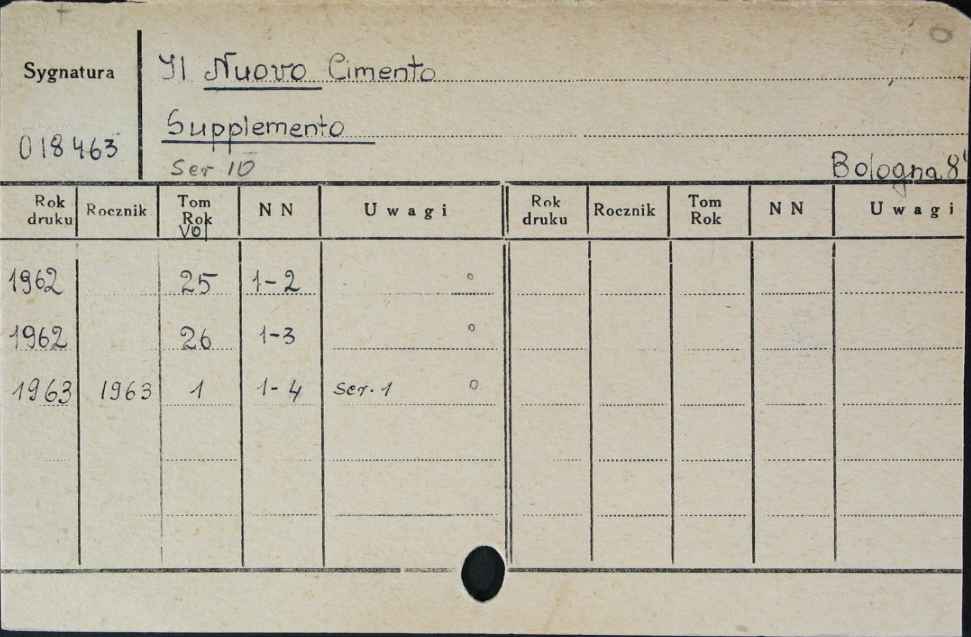 Sygnatura Il Nuovo Cimento
018463 Supplemento
Ser 10 Bologna 8°
Rok druku Rocznik Tom Rok Vol NN Uwagi Rok druku Rocznik Tom Rok NN Uwagi
1962 25 1-2 o
1962 26 1-3 o
1963 1963 1 1-4 Ser. 1 o